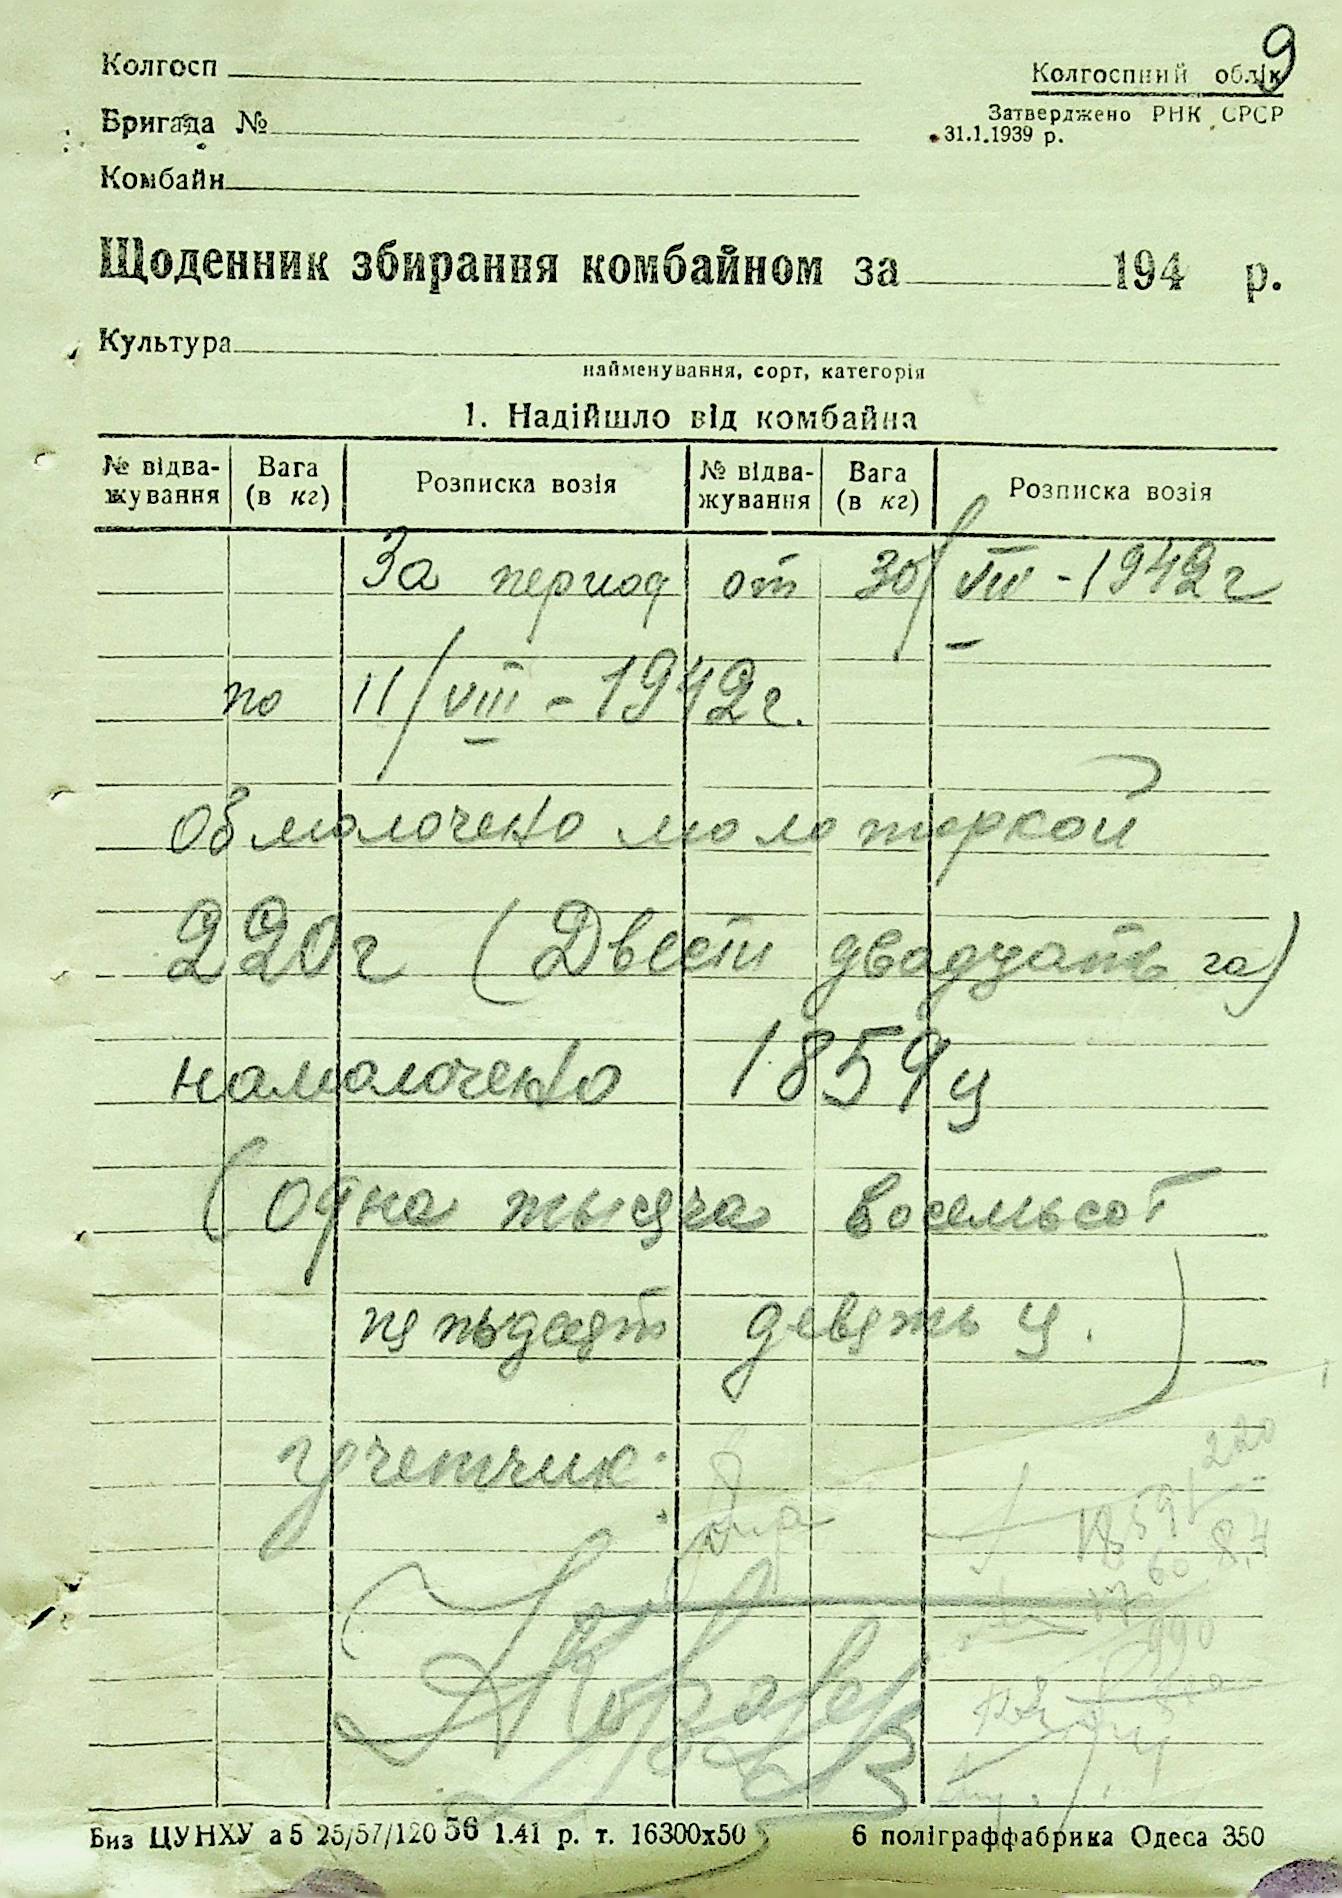 9
Колгосп
Колгоспний облік
Бригада №
Затверджено РНК СРСР
31.1.1939 р.
Комбайн
Щоденник збирання комбайном за 194 р.
Культура
найменування, сорт, категорія
1. Надійшло від комбайна
№ відва-жування Вага (в кг) Розписка возія № відва-жування Вага (в кг) Розписка возія
За период от 30/VII - 1942 г
по 11/VIII - 1942 г.
обмолочено молотаркой
220 г (Двести двадцать га)
намолочено 1859 ц
(одна тысяча восемьсот
пятьдесят девять ц.)
учетчик.
220
1859
8,4
60
990
Биз ЦУНХУ а5 25/57/120 56 1.41 р. т. 16300х50 6 поліграффабрика Одеса 350